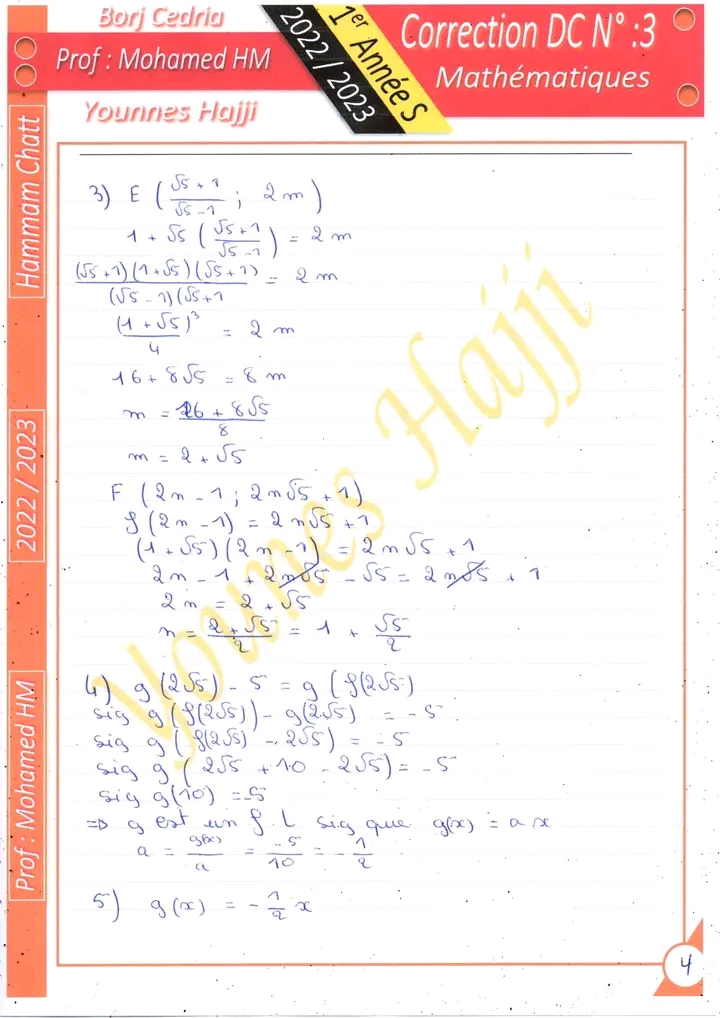 Borj Cedria
Prof : Mohamed HM
Younnes Hajji
1er Année S
2022 / 2023
Correction DC N° :3
Mathématiques
Hammam Chatt
2022 / 2023
Prof : Mohamed HM
Younes Hajji
3) E ( (√5 + 1)/(√5 - 1) ; 2m )
1 + √5 ( (√5 + 1)/(√5 - 1) ) = 2m
(√5 + 1)(1 + √5)(√5 + 1) / (√5 - 1)(√5 + 1 = 2m
(1 + √5)³ / 4 = 2m
16 + 8√5 = 8m
m = (16 + 8√5)/8
m = 2 + √5
F (2n - 1 ; 2n√5 + 1)
f(2n - 1) = 2n√5 + 1
(1 + √5)(2n - 1) = 2n√5 + 1
2n - 1 + 2n√5 - √5 = 2n√5 + 1
2n = 2 + √5
n = (2 + √5)/2 = 1 + √5/2
4) g(2√5) - 5 = g(f(2√5)
sig g(f(2√5)) - g(2√5) = -5
sig g(f(2√5) - 2√5) = -5
sig g(2√5 + 10 - 2√5) = -5
sig g(10) = -5
=> g est un f. L sig que g(x) = ax
a = g(x)/a = -5/10 = -1/2
5) g(x) = -1/2 x
4